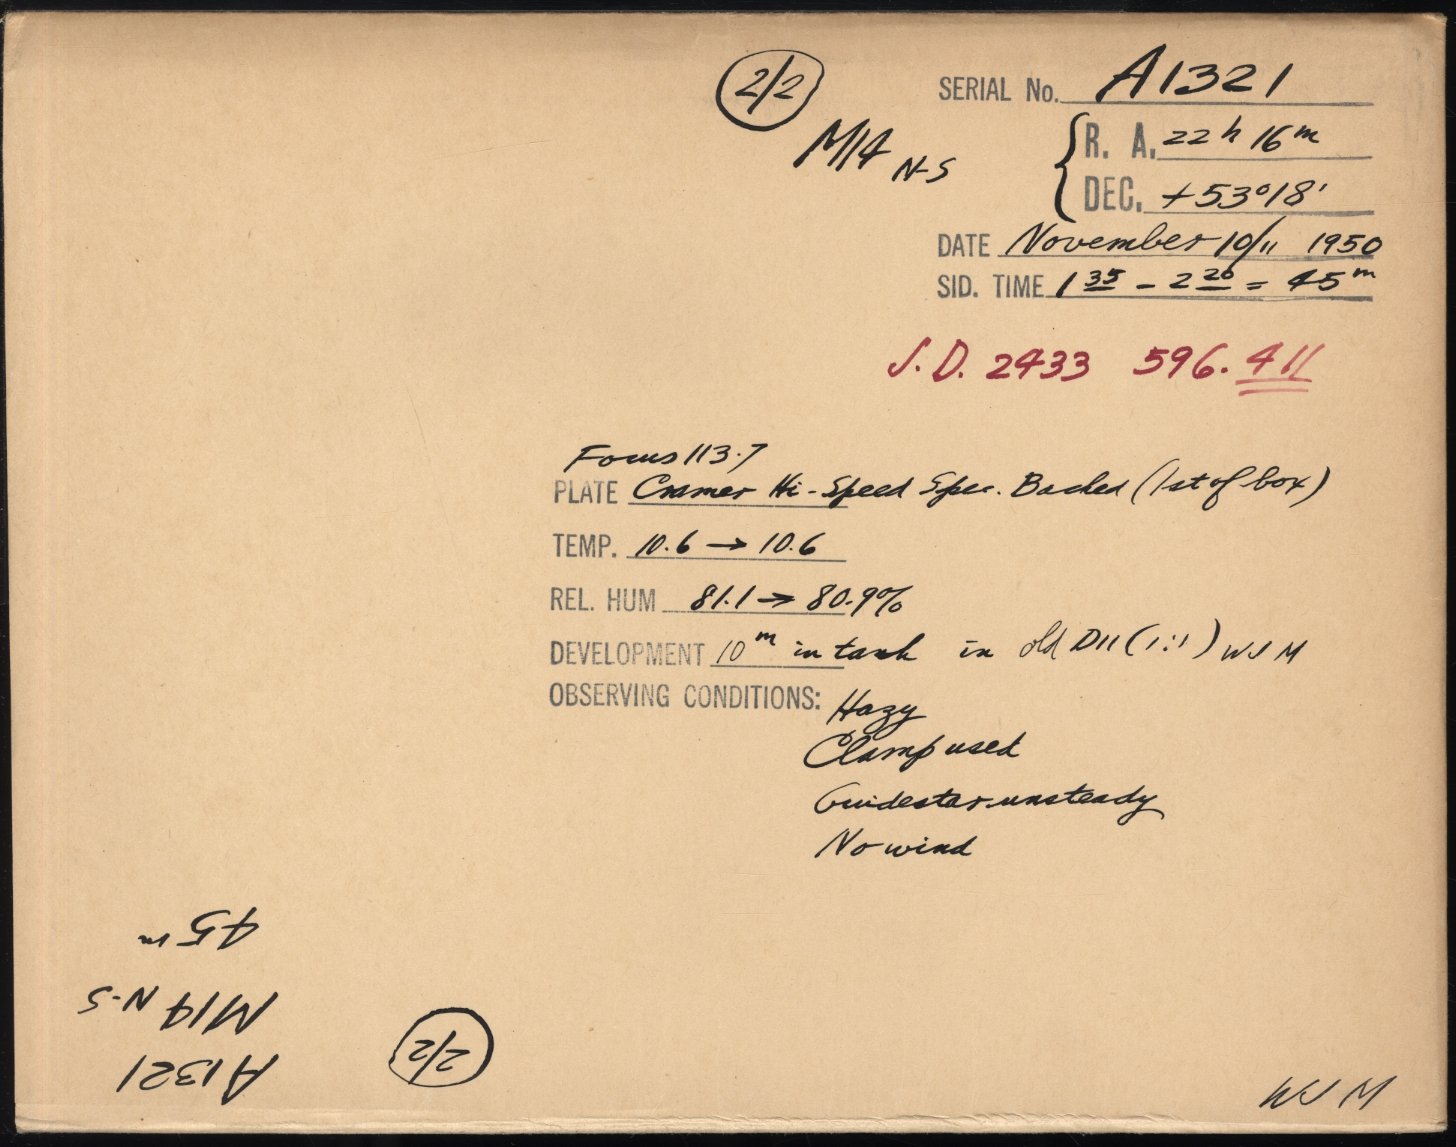 2/2
SERIAL No. A1321
M14 N-S
R. A. 22 h 16 m
DEC. +53°18'
DATE November 10/11 1950
SID. TIME 1 35 - 2 20 = 45 m
J.D. 2433 596.411
Focus 113.7
PLATE Cramer Hi-Speed Spec. Backed (1st of box)
TEMP. 10.6 → 10.6
REL. HUM 81.1 → 80.9%
DEVELOPMENT 10 m in tank in old D11 (1:1) WJM
OBSERVING CONDITIONS: Hazy
Clamp used
Guidestar unsteady
No wind
45 m
M14 N-S
A1321
2/2
WJM